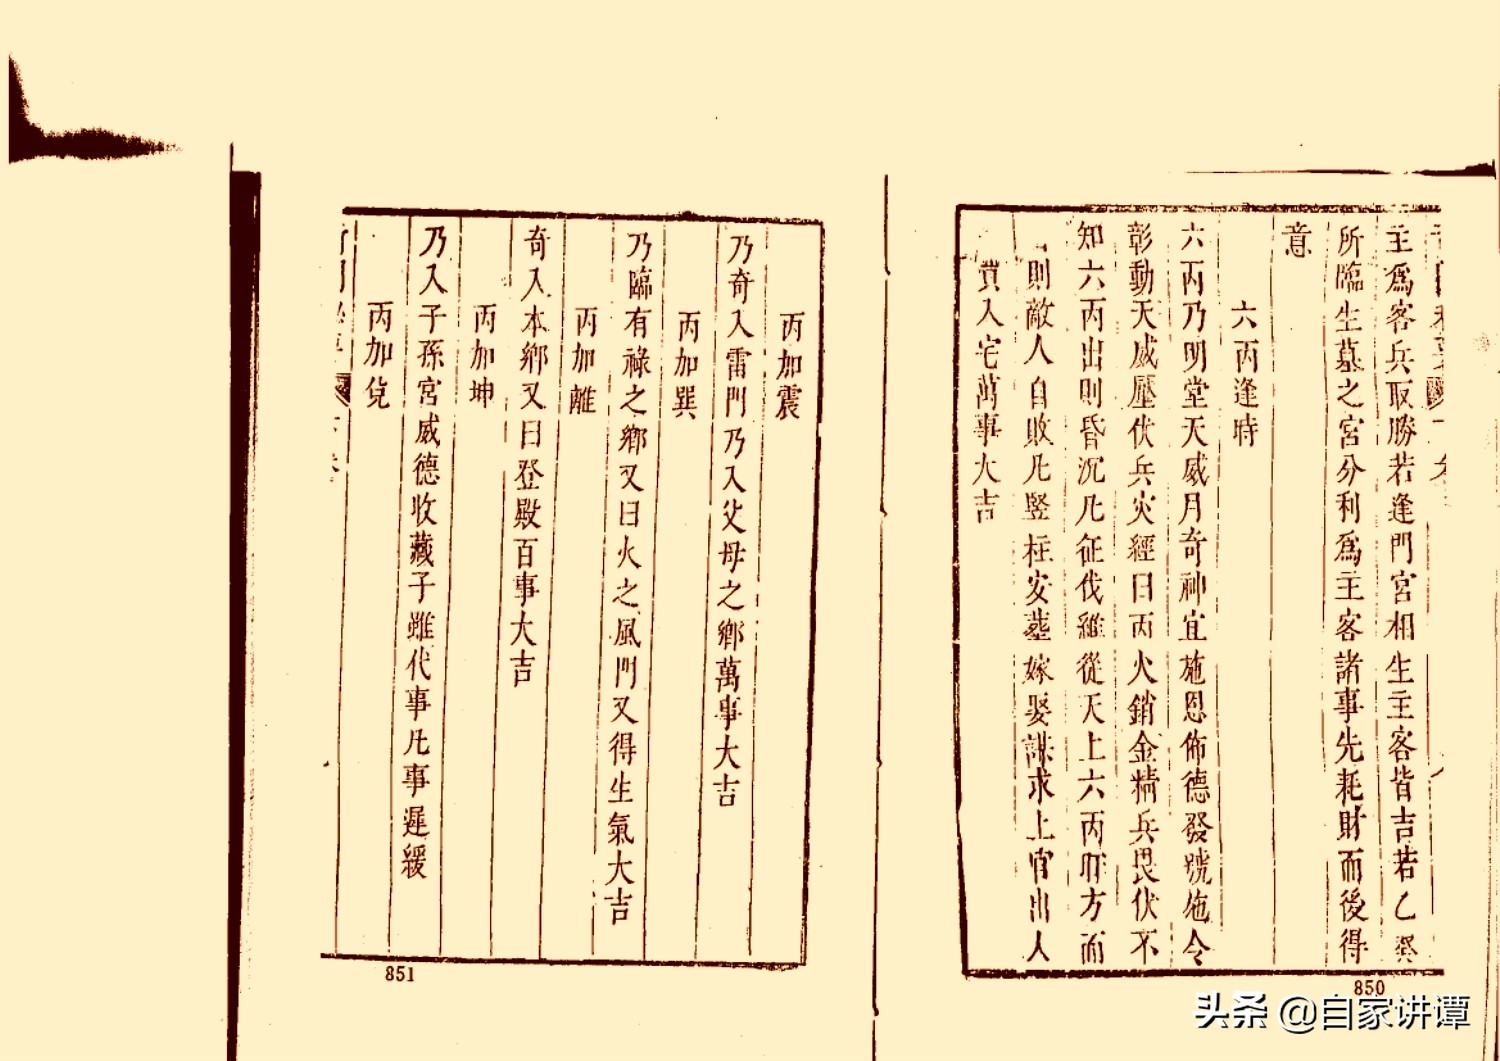 主爲客兵取勝若逢門宮相生主客皆吉若乙奚
所臨生墓之宮分利爲主客諸事先耗財而後得
意
六丙逢時
六丙乃明堂天威月奇神宜施恩佈德發號施令
彰動天威壓伏兵災經曰丙火銷金精兵畏伏不
知六丙出則昏沉凡征伐雖從天上六丙所方而
則敵人自敗凡竪柱安墓嫁娶謀求上官出人
買入宅萬事大吉
850
丙加震
乃奇入雷門乃入父母之鄉萬事大吉
丙加巽
乃臨有祿之鄉又曰火之風門又得生氣大吉
丙加離
奇入本鄉又曰登殿百事大吉
丙加坤
乃入子孫宮威德收藏子雖代事凡事遲緩
丙加兌
851
头条 @自家讲谭